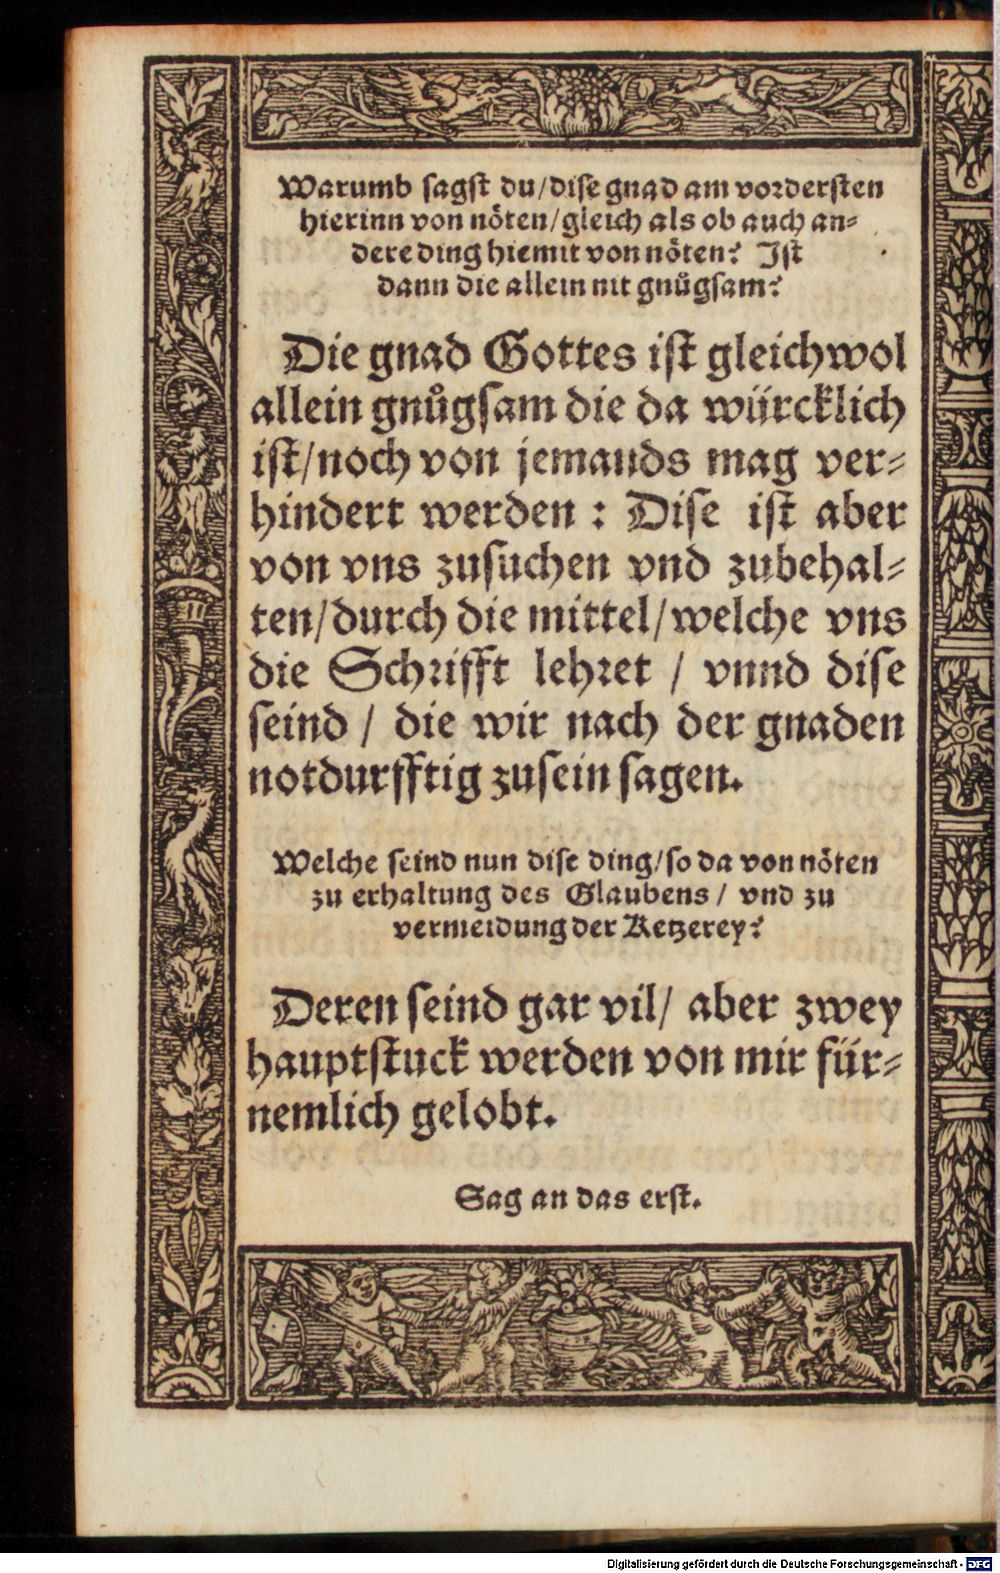 Warumb sagst du/dise gnad am vordersten
hierinn von nöten/gleich als ob auch an-
dere ding hiemit von nöten? Ist
dann die allein nit gnůgsam?
Die gnad Gottes ist gleichwol
allein gnůgsam die da würcklich
ist/noch von jemands mag ver-
hindert werden : Dise ist aber
von vns zusuchen vnd zubehal-
ten/durch die mittel/welche vns
die Schrifft lehret / vnnd dise
seind / die wir nach der gnaden
notdurfftig zusein sagen.
Welche seind nun dise ding/so da von nöten
zu erhaltung des Glaubens / vnd zu
vermeidung der Ketzerey?
Deren seind gar vil/ aber zwey
hauptstuck werden von mir für-
nemlich gelobt.
Sag an das erst.
Digitalisierung gefördert durch die Deutsche Forschungsgemeinschaft - DFG